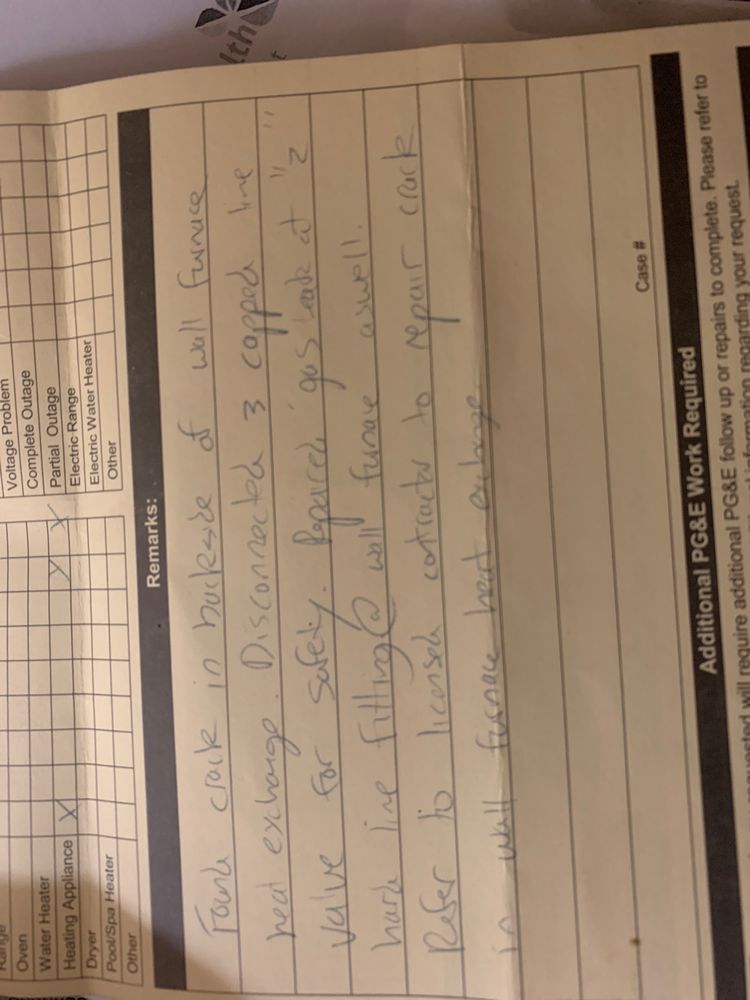 lth
Range
Oven
Water Heater
Heating Appliance X
Dryer
Pool/Spa Heater
Other
Voltage Problem
Complete Outage
Partial Outage
Electric Range
Electric Water Heater
Other
Remarks:
Found crack in backside of wall furnace
heat exchange. Disconnected 3 capped line
valve for safety. Repaired gas leak at 1/2"
hard line fitting @ wall furnace aswell.
Refer to licensed contractor to repair crack
in wall furnace heat exhange.
Case #
Additional PG&E Work Required
will require additional PG&E follow up or repairs to complete. Please refer to
information regarding your request.